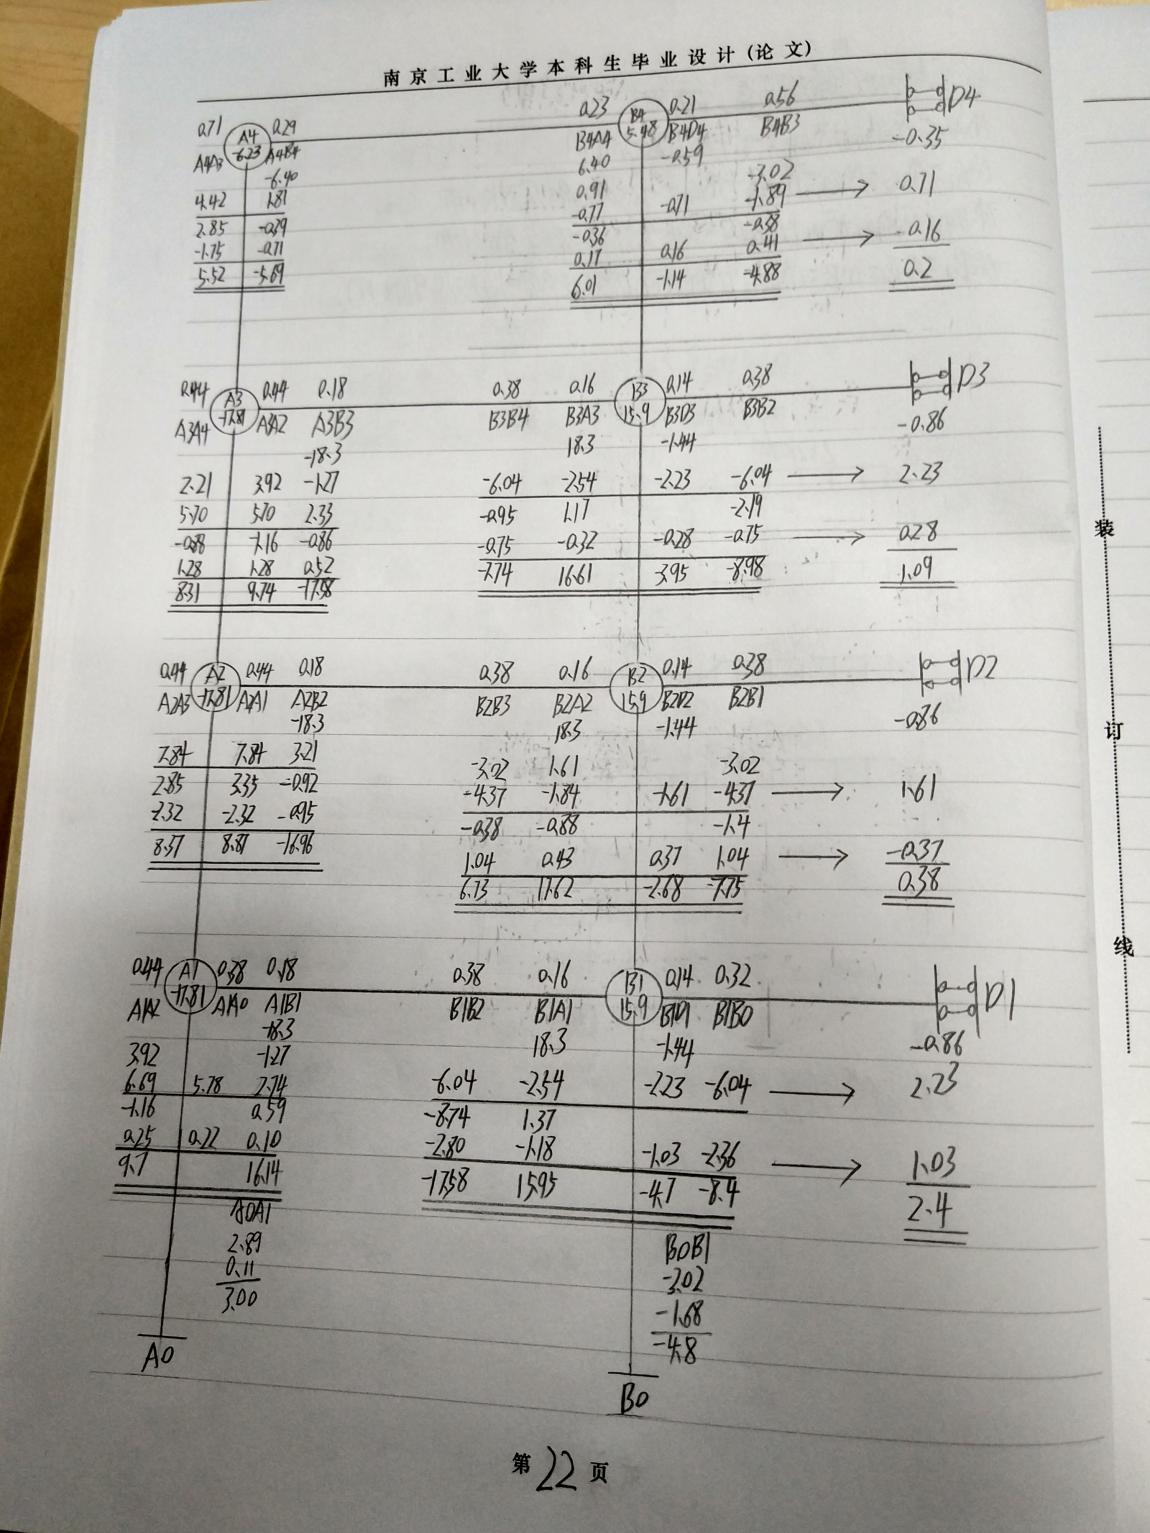 南京工业大学本科生毕业设计(论文)
0.71 A4 0.29 0.23 B4 0.21 0.56 D4
A4A3 -6.23 A4B4 B4A4 5.48 B4D4 B4B3 -0.35
-6.40 6.40 -0.59
4.42 1.81 0.91 -3.02
2.85 -0.39 -0.77 -0.71 -1.89 → 0.71
-1.75 -0.71 -0.36 -0.38
5.52 -5.69 0.17 0.16 0.41 → -0.16
6.01 -1.14 -4.88 0.2
0.44 A3 0.44 0.18 0.38 0.16 B3 0.14 0.38 D3
A3A4 -17.81 A3A2 A3B3 B3B4 B3A3 15.9 B3D3 B3B2 -0.86
-18.3 18.3 -1.44
2.21 3.92 -1.27 -6.04 -2.54 -2.23 -6.04 → 2.23
5.70 5.70 2.33 -0.95 1.17 -2.19
-0.88 -1.16 -0.86 -0.75 -0.32 -0.28 -0.75 → 0.28
1.28 1.28 0.52 -7.74 16.61 3.95 -8.98 1.09
8.31 9.74 -17.58
0.44 A2 0.44 0.18 0.38 0.16 B2 0.14 0.38 D2
A2A3 -17.81 A2A1 A2B2 B2B3 B2A2 15.9 B2D2 B2B1 -0.86
-18.3 18.3 -1.44
7.84 7.84 3.21 -3.02 1.61 -3.02
2.85 3.35 -0.92 -4.37 -1.84 -1.61 -4.37 → 1.61
-2.32 -2.32 -0.95 -0.38 -0.88 -1.4
8.37 8.87 -16.96 1.04 0.43 0.37 1.04 → -0.37
6.73 17.62 -2.68 -7.75 0.38
0.44 A1 0.38 0.18 0.38 0.16 B1 0.14 0.32 D1
A1A2 -17.81 A1A0 A1B1 B1B2 B1A1 15.9 B1D1 B1B0 -0.86
-18.3 18.3 -1.44
3.92 -1.27
6.69 5.78 2.74 -6.04 -2.54 -2.23 -6.04 → 2.23
-1.16 0.59 -8.74 1.37
0.25 0.22 0.10 -2.80 -1.18 -1.03 -2.36 → 1.03
9.7 16.14 -17.58 15.95 -4.7 -8.4 2.4
A0A1 B0B1
2.89 -3.02
0.11 -1.68
3.00 -4.8
A0 B0
第22页
装
订
线